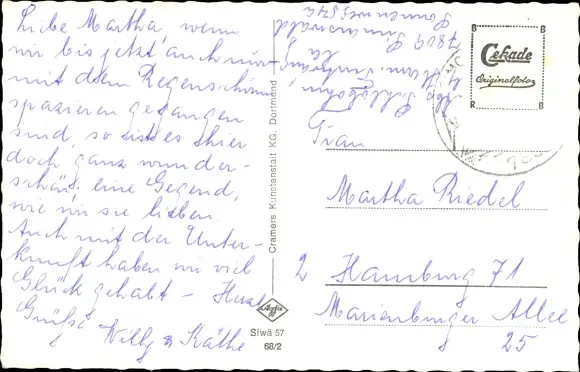 Liebe Martha, wenn
wir bis jetzt auch nur
mit dem Regenschirm
spazieren gegangen
sind, so ist es hier
doch ganz wunder-
schön, eine Gegend,
wie wir sie lieben.
Auch mit der Unter-
kunft haben wir viel
Glück gehabt - Herzl.
Grüße Willy u Käthe
Abs. Schlobohm,
7809 Simonswald
Cramers Kunstanstalt KG, Dortmund
Agfa
Siwä 57
68/2
B B
Cekade
Originalfoto
R B
Frau
Martha Riedel
2 Hamburg 71
Marienburger Allee
25